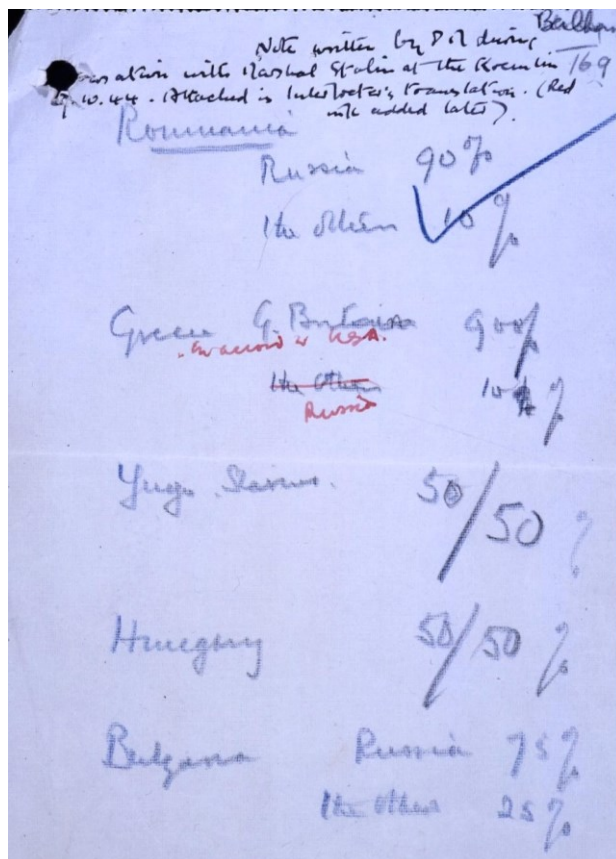 Note written by P.M during
with Marshal Stalin at the Kremlin 169
44. Attached is translation. (Red
ink added later).
Roumania
Russia 90%
The others 10%
Greece G. Britain 90%
in accord w USA.
The Others 10%
Russia
Yugo Slavia.
50/50 %
Hungary 50/50 %
Bulgaria Russia 75%
The others 25%